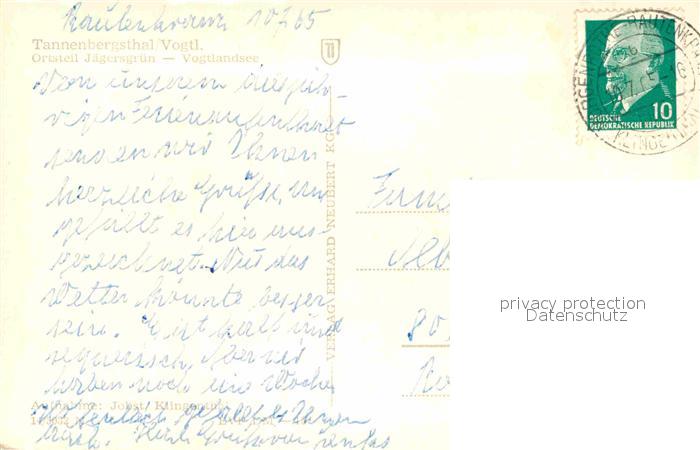 Rautenkranz 10.7.65
Tannenbergsthal/Vogtl.
Ortsteil Jägersgrün — Vogtlandsee
Von unserem diesjäh-
rigen Ferienaufenthalt
senden wir Ihnen
herzliche Grüße. Uns
gefällt es hier aus-
gezeichnet. Nur das
Wetter könnte besser
sein. Es ist kalt und
regnerisch. Aber wir
haben noch eine Woche
Aufnahme: Jobst, Klingenthal
gefällt es Ihnen
auch. Herzl. Grüße von
VERLAG ERHARD NEUBERT KG
DEUTSCHE
DEMOKRATISCHE REPUBLIK
10
RAUTENKRANZ
KLINGENTHAL
80
privacy protection
Datenschutz